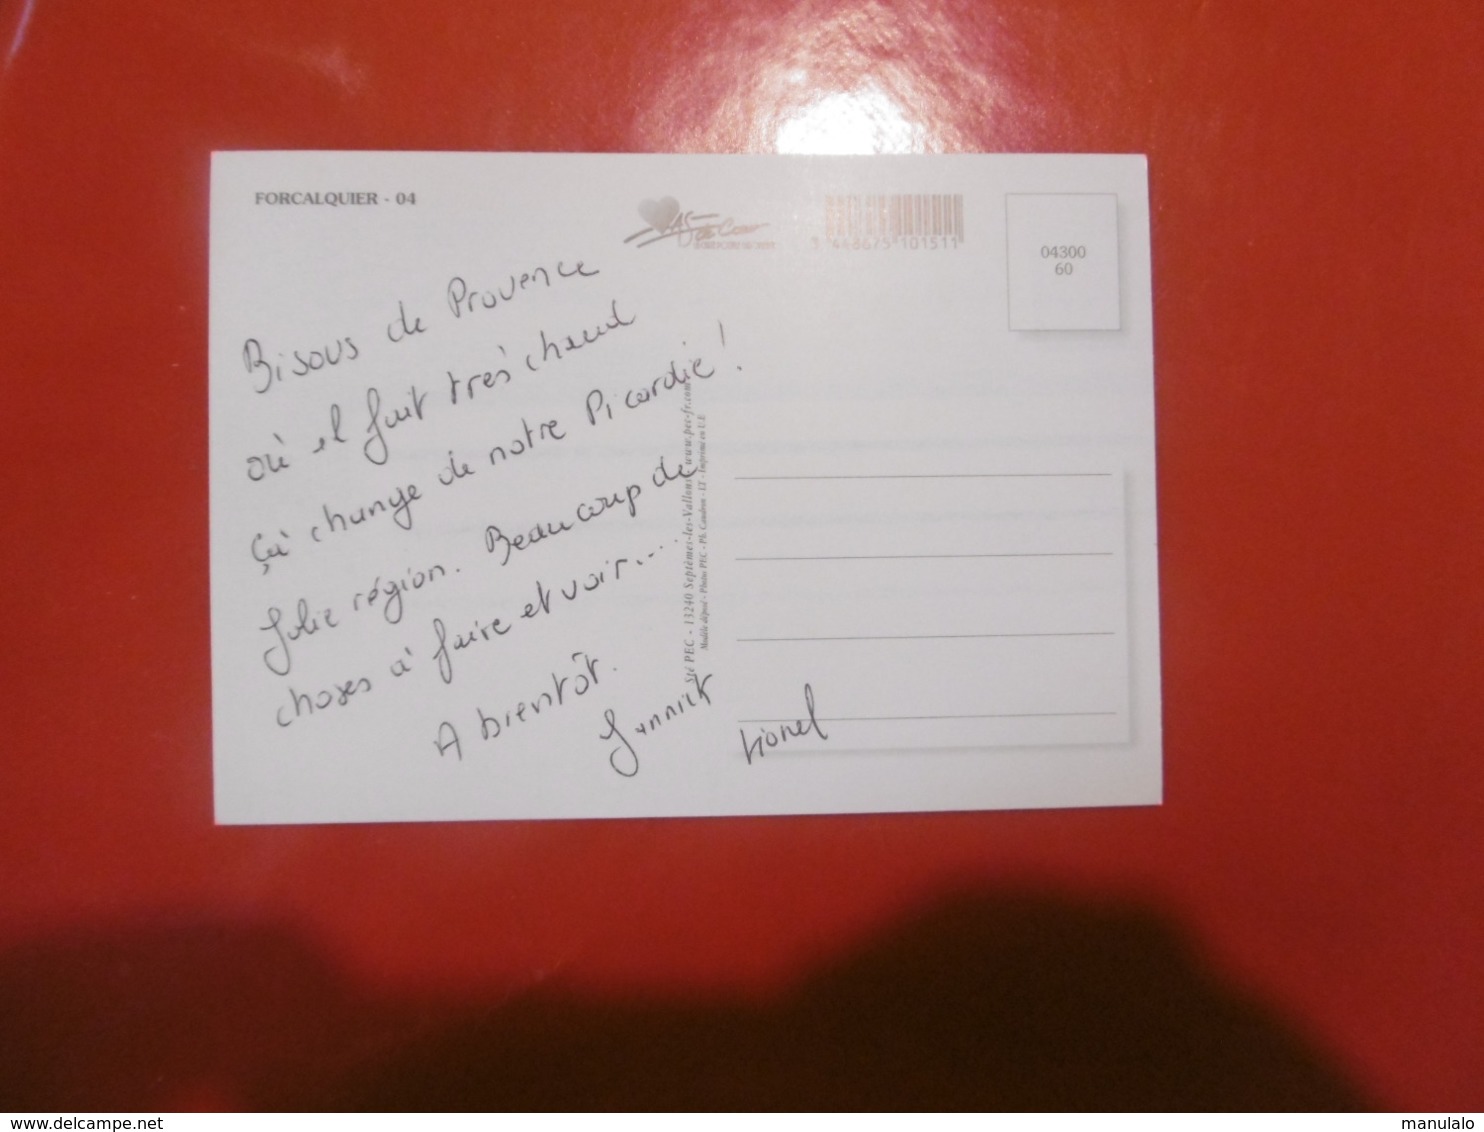 FORCALQUIER - 04
3 448675 101511
04300
60
Bisous de Provence
où il fait très chaud
çà change de notre Picardie !
Jolie région. Beaucoup de
choses à faire et voir....
A bientôt.
Yannick
Lionel
Sté PEC - 13240 Septèmes-les-Vallons - www.pec-fr.com
Modèle déposé - Photos PEC - Ph. Caudron - LT - Imprimé en U.E
delcampe.net
manulalo